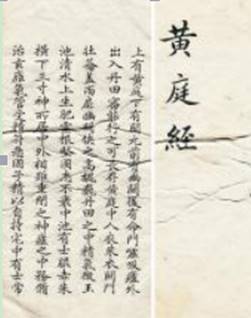 黃庭經
上有黃庭下有關元前有幽闕後有命門噓吸廬外
出入丹田審能行之可長存黃庭中人衣朱衣關門
壯籥蓋兩扉幽闕俠之高巍巍丹田之中精氣微玉
池清水上生肥靈根堅固老不衰中池有士服赤朱
橫下三寸神所居中外相距重閉之神廬之中務脩
治玄雍氣管受精符急固子精以自持宅中有士常